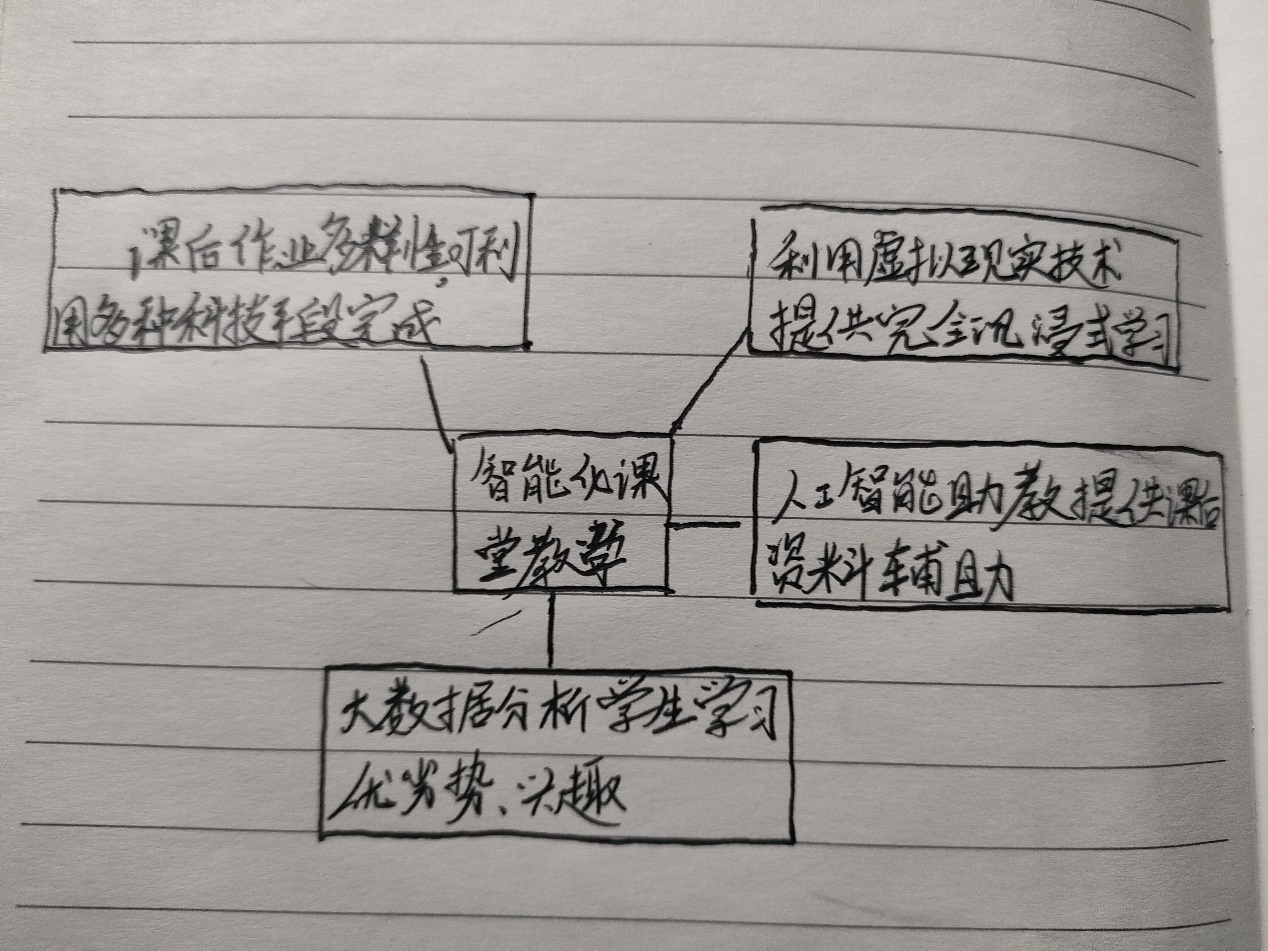 课后作业多样性,可利
用多种科技手段完成
利用虚拟现实技术
提供完全沉浸式学习
智能化课
堂教学
人工智能助教提供课后
资料辅助
大数据分析学生学习
优劣势、兴趣